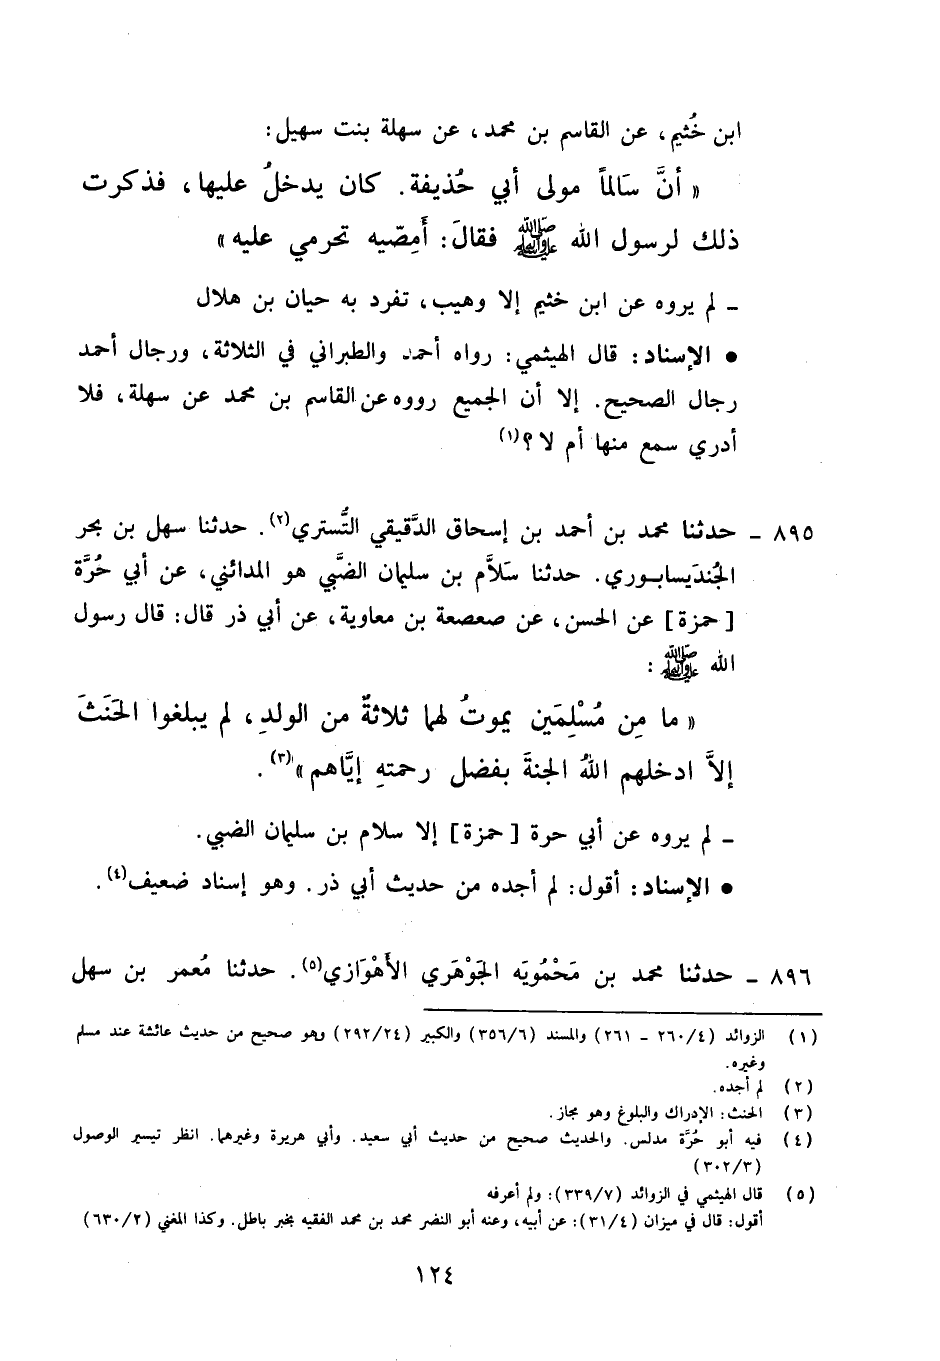 ابن خُثيم، عن القاسم بن محمد، عن سهلة بنت سهيل:
« أنَّ سَالماً مولى أبي حُذيفة. كان يدخلُ عليها، فذكرت
ذلك لرسول الله ﷺ فقالَ: أَمِصّيه تحرمي عليه»
ـ لم يروه عن ابن خثيم إلا وهيب، تفرد به حيان بن هلال
• الإسناد: قال الهيثمي: رواه أحمد والطبراني في الثلاثة، ورجال أحمد
رجال الصحيح. إلا أن الجميع رووه عن القاسم بن محمد عن سهلة، فلا
أدري سمع منها أم لا؟(١)
٨٩٥ ـ حدثنا محمد بن أحمد بن إسحاق الدَّقيقي التُّستري(٢). حدثنا سهل بن بحر
الجُندَيسابوري. حدثنا سَلاَّم بن سليمان الضَّبي هو المدائني، عن أبي حُرَّة
[حمزة] عن الحسن، عن صعصعة بن معاوية، عن أبي ذر قال: قال رسول
الله ﷺ :
« ما مِن مُسْلِمَين يموتُ لهما ثلاثةٌ من الولدِ، لم يبلغوا الحَنَثَ
إلاَّ ادخلهم اللهُ الجنةَ بفضل رحمتهِ إيَّاهم»(٣).
ـ لم يروه عن أبي حرة [حمزة] إلا سلام بن سليمان الضبي.
• الإسناد: أقول: لم أجده من حديث أبي ذر. وهو إسناد ضعيف(٤).
٨٩٦ ـ حدثنا محمد بن مَحْمُويَه الجَوْهَري الأَهْوَازي(٥). حدثنا مُعمر بن سهل
(١) الزوائد (٢٦٠/٤ ـ ٢٦١) والمسند (٣٥٦/٦) والكبير (٢٩٢/٢٤) وهو صحيح من حديث عائشة عند مسلم
وغيره.
(٢) لم أجده.
(٣) الحنث: الإدراك والبلوغ وهو مجاز.
(٤) فيه أبو حُرَّة مدلس. والحديث صحيح من حديث أبي سعيد. وأبي هريرة وغيرهما. انظر تيسير الوصول
(٣٠٢/٣)
(٥) قال الهيثمي في الزوائد (٣٣٩/٧): ولم أعرفه
أقول: قال في ميزان (٣١/٤): عن أبيه، وعنه أبو النضر محمد بن محمد الفقيه بخبر باطل. وكذا المغني (٦٣٠/٢)
١٢٤